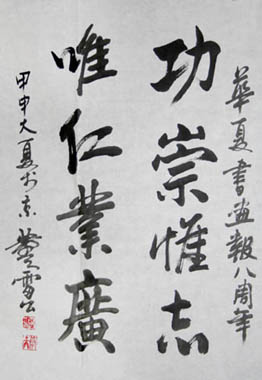 華夏書画報八周年
功崇惟志
唯仁業廣
甲申大夏於京